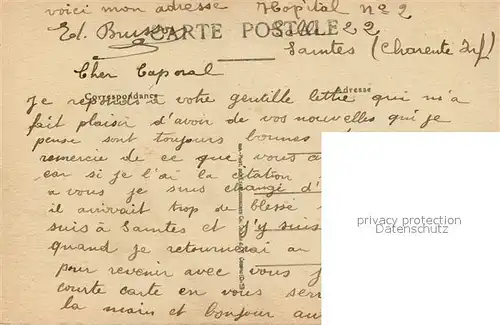 voici mon adresse Hopital Nº 2
Ed. CARTE POSTALE 22
Saintes (Charente Inf)
Cher Caporal
Correspondance Adresse
Je reponds a votre gentille lettre qui m'a
fait plaisir d'avoir de vos nouvelles qui je
pense sont toujours bonnes
remercie de ce que vous a
car si je l'ai la citation
a vous je suis changé d'
il auivait trop de blessé
suis à Saintes et j'y suis
quand je retournerai au
pour revenir avec vous j
courte carte en vous serr
la main et bonjour au
privacy protection
Datenschutz